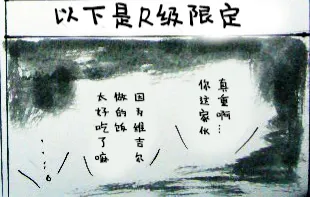 以下是R级限定
真重啊…
你这家伙
因为维吉尔
做的饭
太好吃了嘛
……。